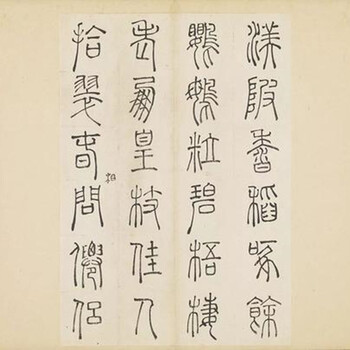 渼陂香稻啄餘
鸚鵡粒碧梧棲
老鳳皇枝佳人
拾翠春相問僊侶